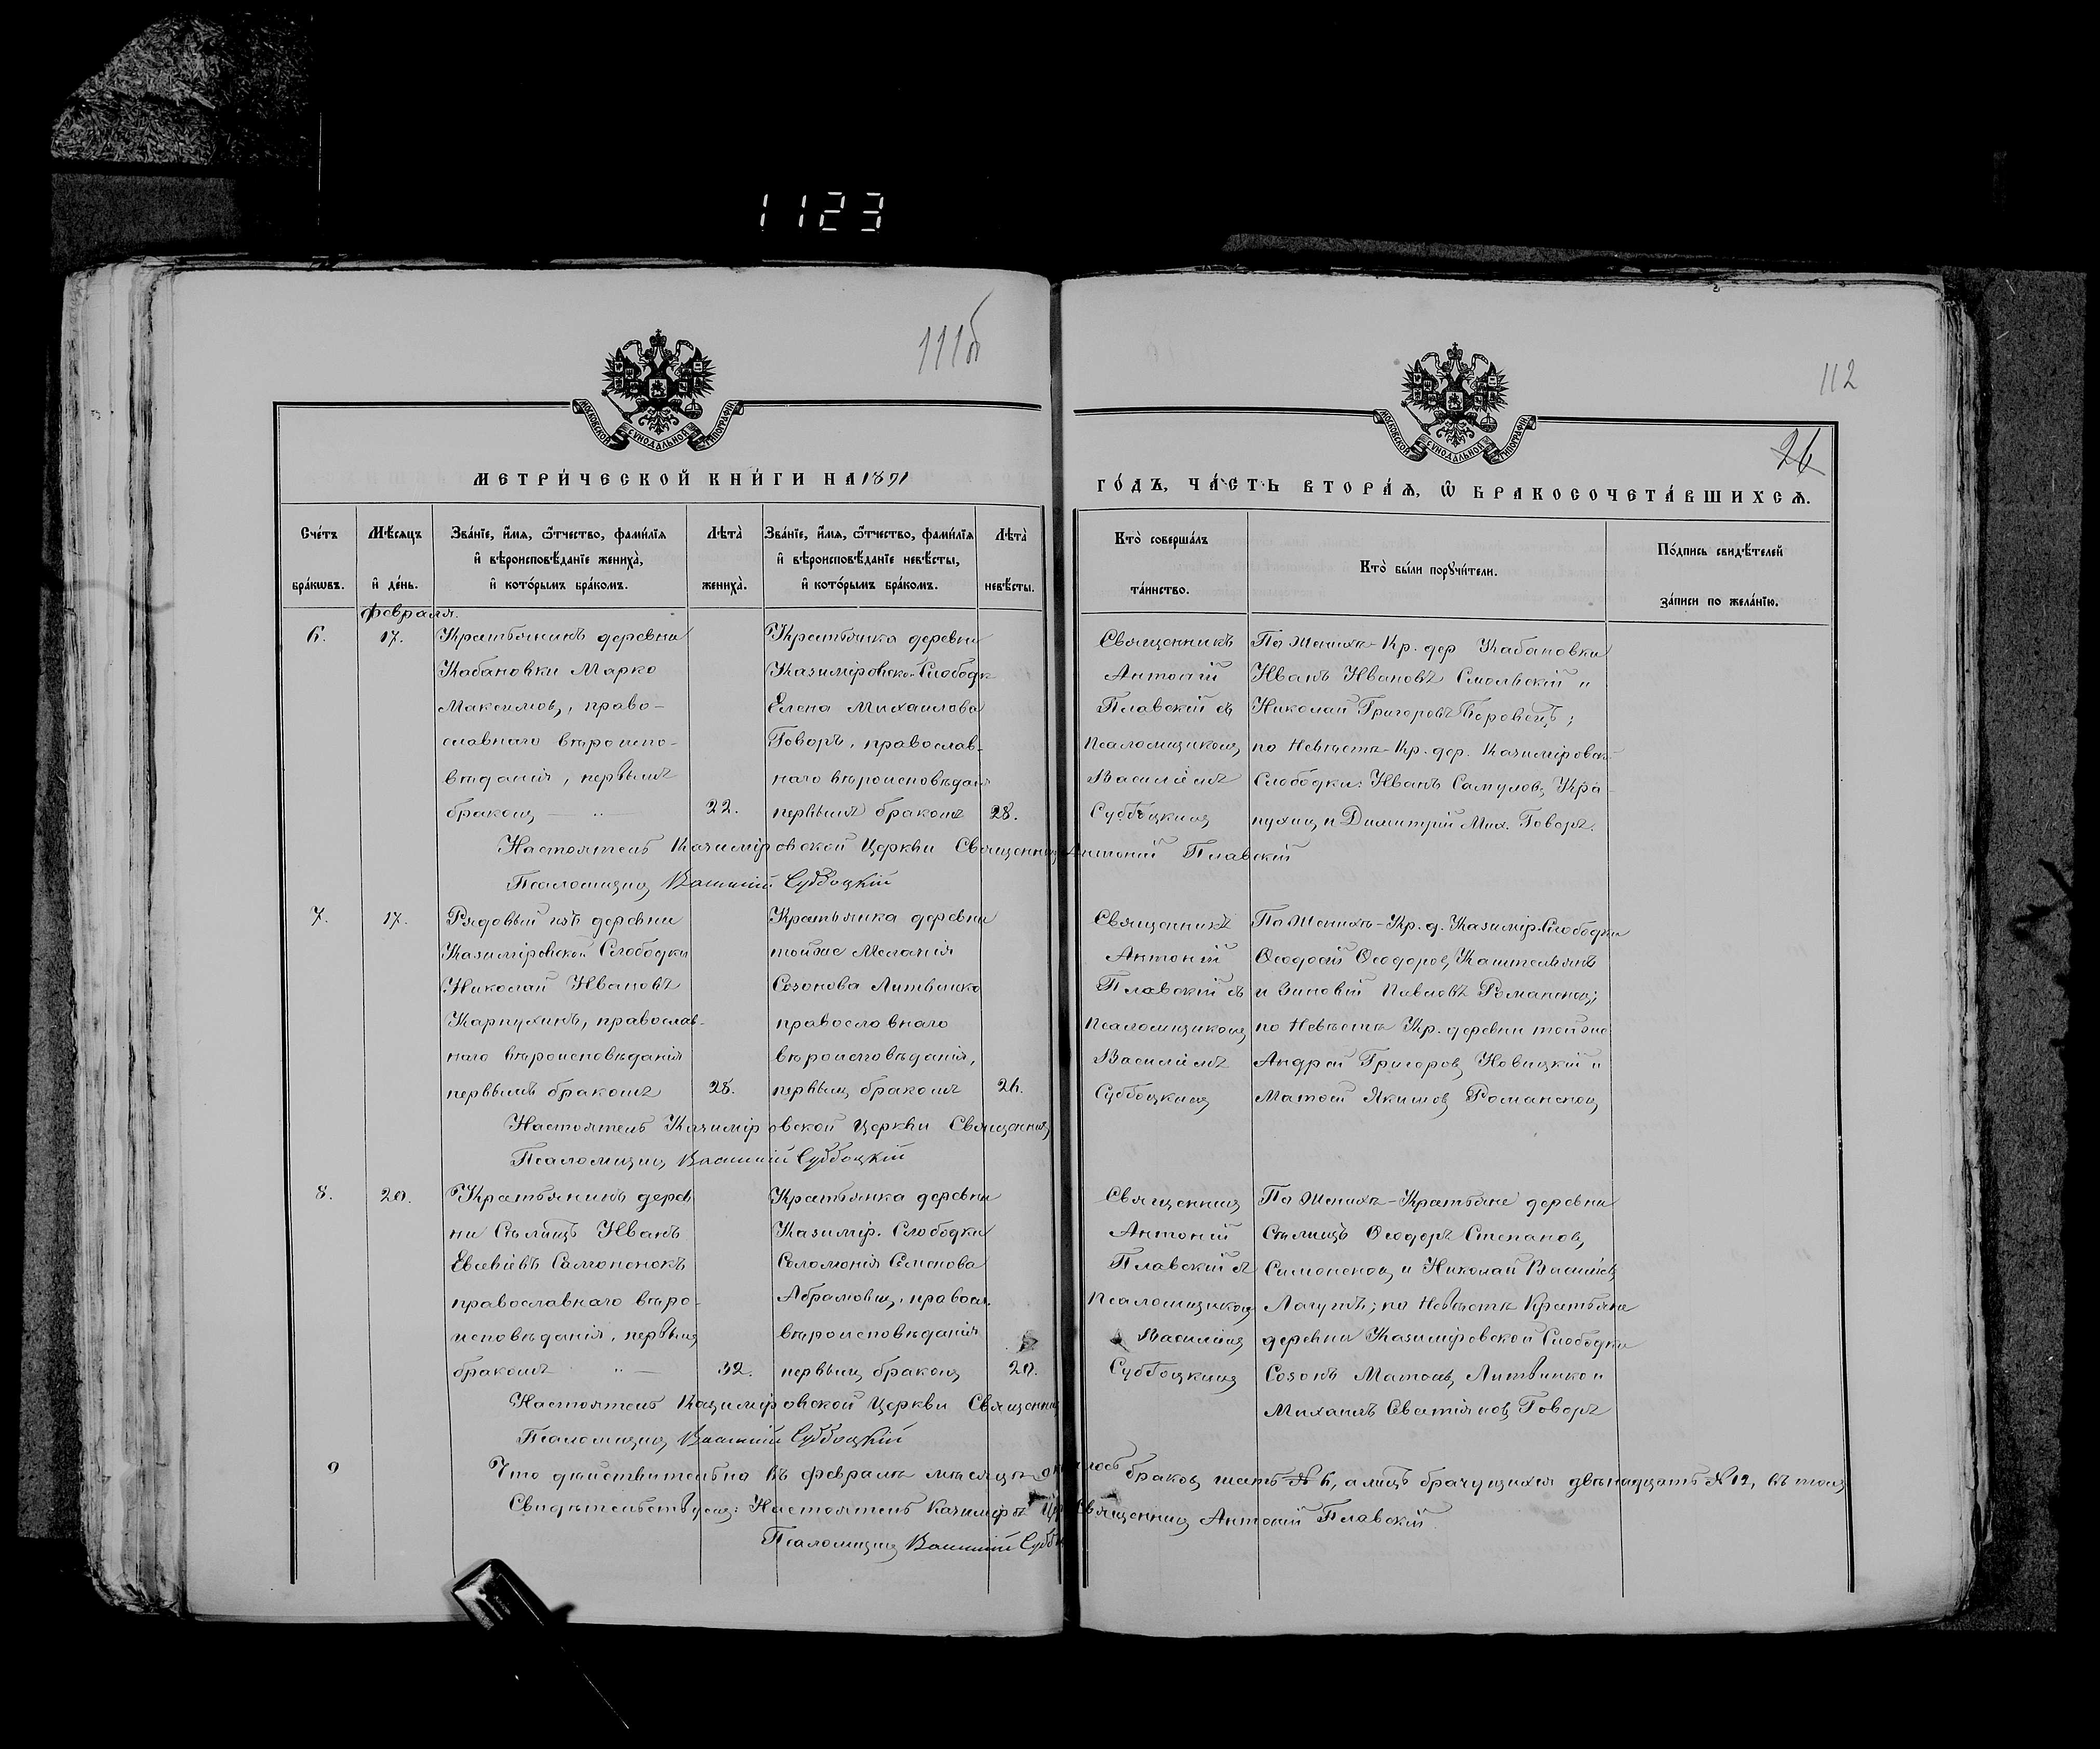 1123
111б
112
26
МОСКОВСКОЙ СѴНОДАЛЬНОЙ ТИПОГРАФІИ
МОСКОВСКОЙ СѴНОДАЛЬНОЙ ТИПОГРАФІИ
МЕТРИ́ЧЕСКОЙ КНИ́ГИ НА 1891
ГО́ДЪ, ЧА́СТЬ ВТОРА́Ѧ, Ѽ БРАКОСОЧЕТА́ВШИХСѦ.
Сче́тъ бра́кѡвъ.
Мѣ́сяцъ и҆ де́нь.
Зва́нїе, и҆́мя, ѻ҆́тчество, фами́лїя и҆ вѣроисповѣ́данїе жениха̀, и҆ кото́рымъ бра́комъ.
Лѣта̀ жениха̀.
Зва́нїе, и҆́мя, ѻ҆́тчество, фами́лїя и҆ вѣроисповѣ́данїе невѣ́сты, и҆ кото́рымъ бра́комъ.
Лѣта̀ невѣ́сты.
Кто̀ соверша́лъ та́инство.
Кто̀ бы́ли порꙋчи́тели.
По́дпись свидѣ́телей за́писи по жела́нїю.
Февраля.
6.
17.
Крестьянинъ деревни
Кабановки Марко
Максимовъ, право-
славнаго вѣроиспо-
вѣданія, первымъ
бракомъ
22.
Крестьянка деревни
Казиміровской Слободки
Елена Михаилова
Говоръ, православ-
наго вѣроисповѣданія
первымъ бракомъ
28.
Священникъ
Антоній
Плавскій съ
Псаломщикомъ
Василіемъ
Субботскимъ
По Женихѣ Кр. дер Кабановки
Иванъ Ивановъ Смольскій и
Николай Григоровъ Боровецъ;
по Невѣстѣ Кр. дер. Казиміровск.
Слободки: Иванъ Самуловъ Кра
пухинъ и Димитрій Мих. Говоръ.
Настоятель Казиміровской Церкви Священникъ Антоній Плавскій
Псаломщикъ Василій Субботскій
7.
17.
Рядовый изъ деревни
Казиміровской Слободки
Николай Ивановъ
Карпухинъ, православ-
наго вѣроисповѣданія
первымъ бракомъ
28.
Крестьянка деревни
тойже Меланія
Созонова Литвинко
православнаго
вѣроисповѣданія,
первымъ бракомъ
26.
Священникъ
Антоній
Плавскій съ
Псаломщикомъ
Василіемъ
Субботскимъ
По Женихѣ-Кр. д. Казимір. Слободки
Ѳеодосій Ѳеодоровъ
и Зиновій Павловъ Романенокъ;
по Невѣстѣ Кр. деревни тойже
Андрей Григоровъ Новицкій и
Матѳей Якимовъ Романенокъ
Настоятель Казиміровской Церкви Священникъ
Псаломщикъ Василій Субботскій
8.
20.
Крестьянинъ дерев
ни Стлищъ Иванъ
Евсѣевъ Самоненокъ
православнаго вѣро-
исповѣданія, первымъ
бракомъ
32.
Крестьянка деревни
Казимір. Слободки
Соломонія Семенова
Абрамовичъ, правосл.
вѣроисповѣданія
первымъ бракомъ
20.
Священникъ
Антоній
Плавскій съ
Псаломщикомъ
Василіемъ
Субботскимъ
По Женихѣ-Крестьяне деревни
Стлищъ Ѳеодоръ Степановъ
Симоненокъ и Николай Василіевъ
Лагунъ; по Невѣстѣ Крестьяне
деревни Казиміровской Слободки
Созонъ Матѳеевъ Литвинко и
Михаилъ Говоръ
Настоятель Казиміровской Церкви Священникъ
Псаломщикъ Василій Субботскій
9
Что дѣйствительно въ февралѣ мѣсяцѣ браковъ шесть № 6, а лицъ брачущихся двѣнадцать № 12, въ томъ
Свидѣтельствуемъ: Настоятель Казимір. Церк. Священникъ Антоній Плавскій
Псаломщикъ Василій Суббот